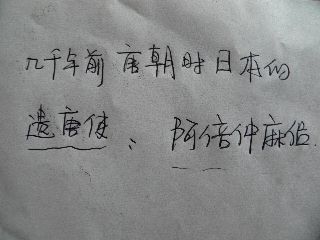 几千年前唐朝时日本的
遣唐使、阿倍仲麻侣.